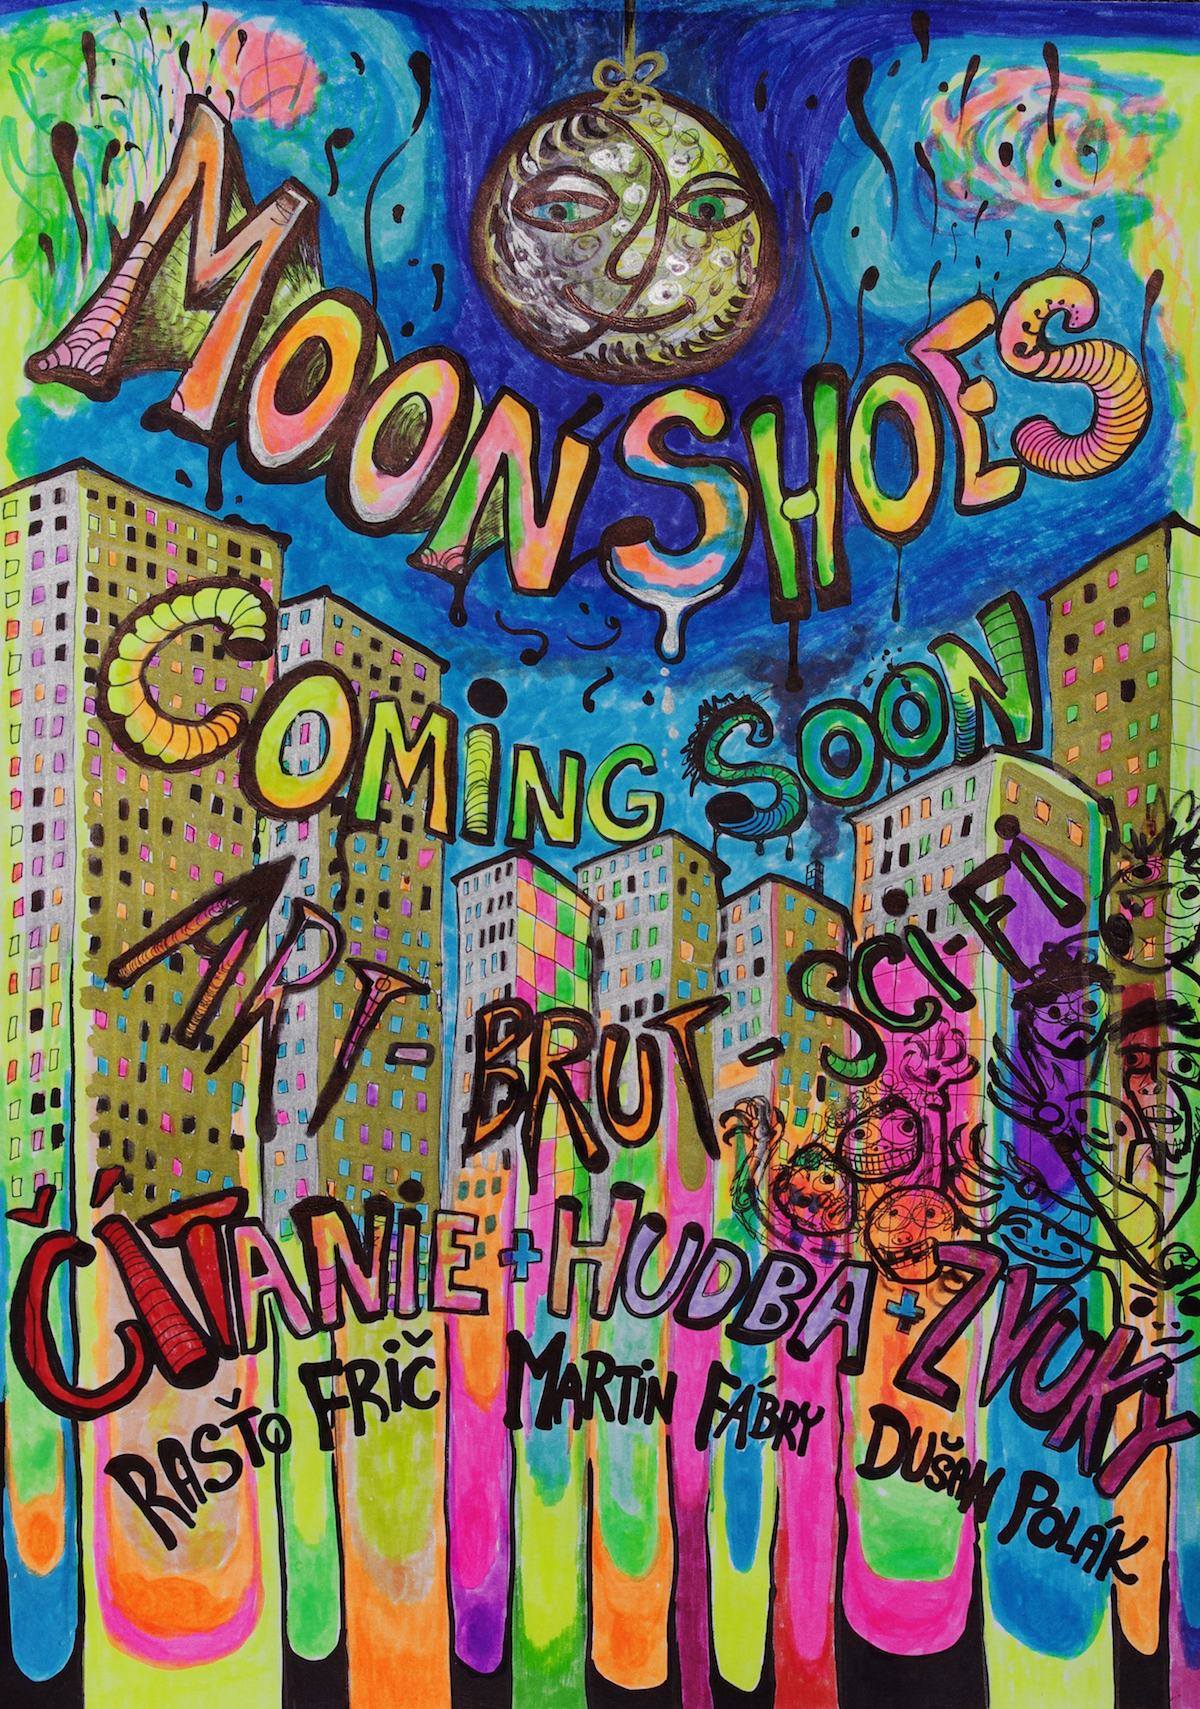 MOONSHOES
COMiNG SOON
ART-BRUT-SCI-FI
ČÍTANiE + HUDBA + ZVUKY
RASŤO FRIČ MARTiN FÁBRY DUŠAN POLÁK